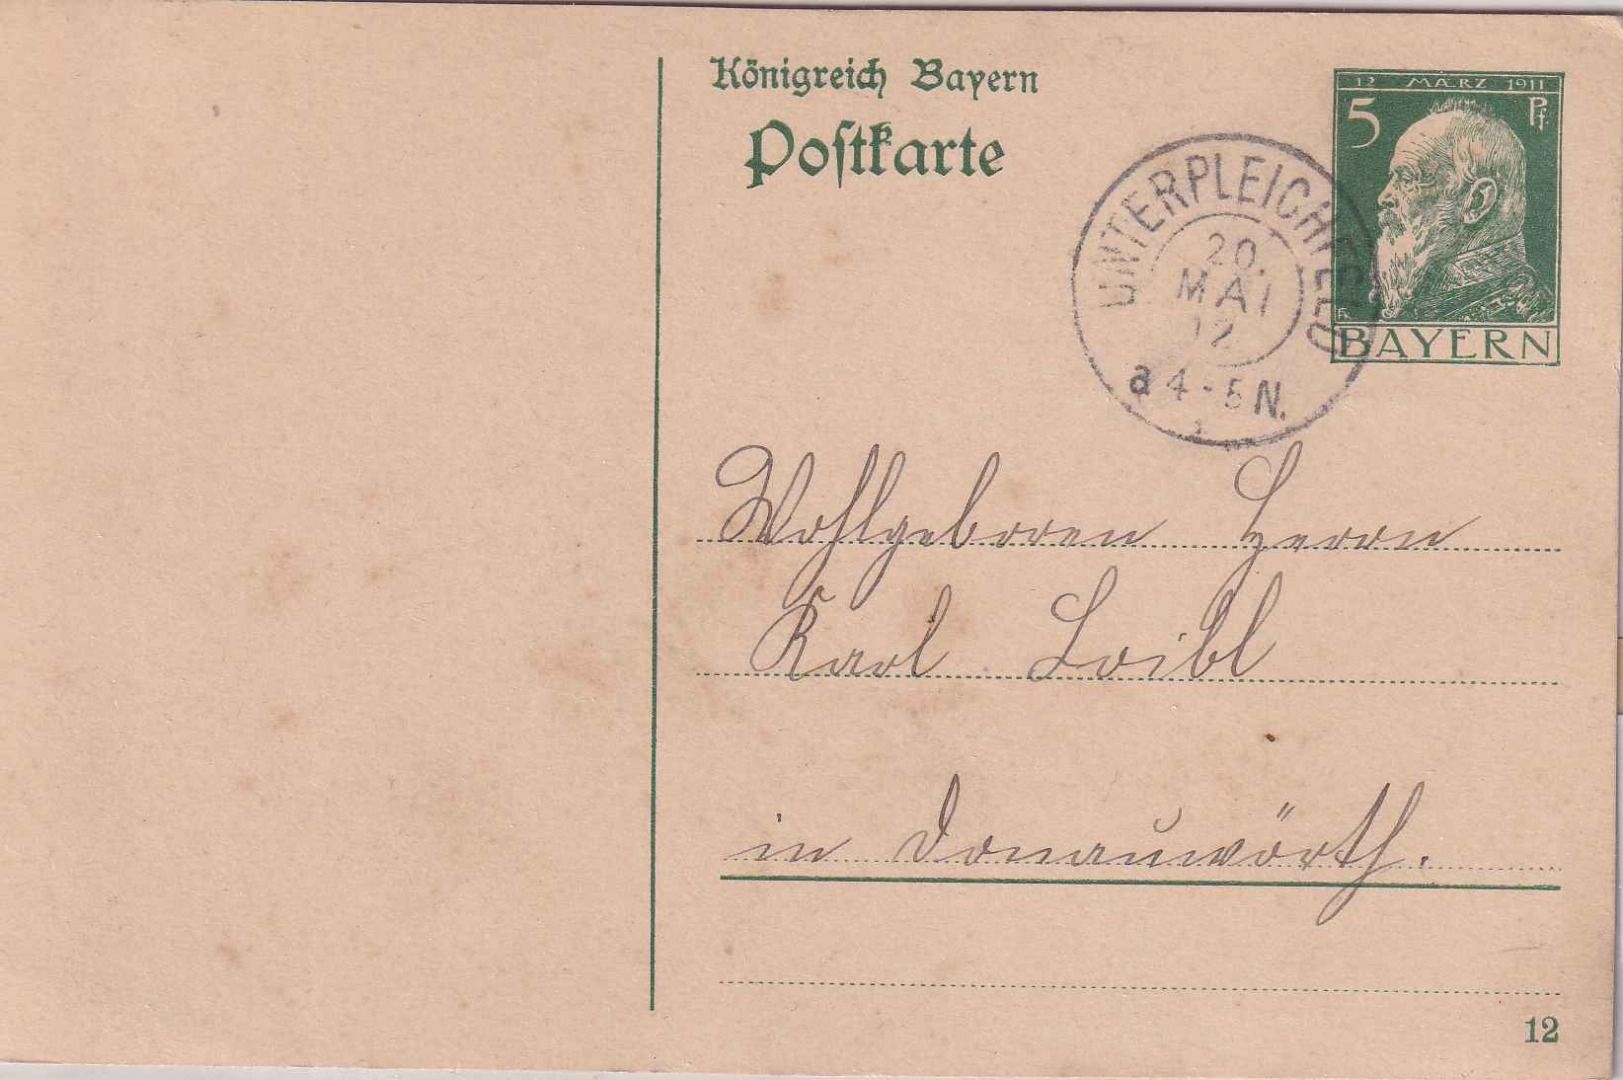 Königreich Bayern
Postkarte
12 MÄRZ 1911
5 Pf
BAYERN
UNTERPLEICHFELD
20.
MAI
12
a 4-5 N.
Wohlgeboren Herrn
Karl Loibl
in Donauwörth.
12